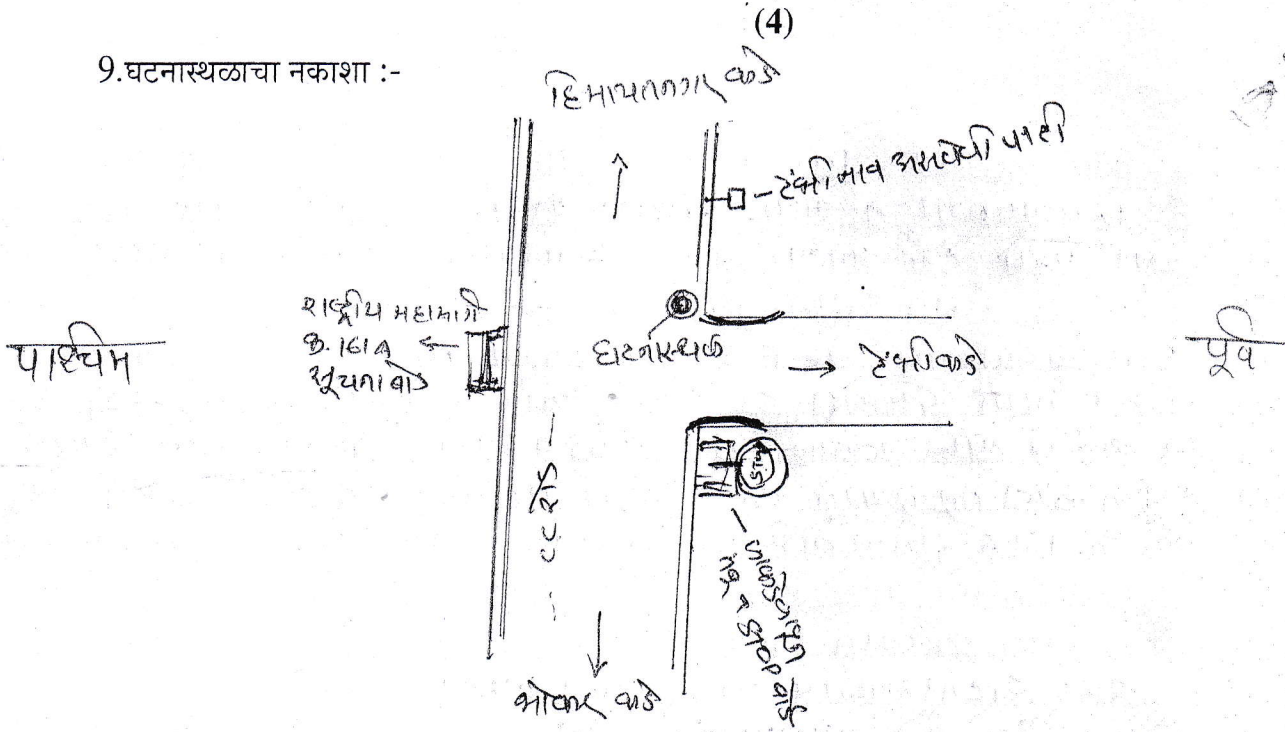 (4)
9.घटनास्थळाचा नकाशा :-
हिमायतनगर कडे
टेंभी नाव असलेली पाटी
राष्ट्रीय महामार्ग
क्र. 161A
सूचना बोर्ड
पश्चिम
घटनास्थळ
टेंभीकडे
पूर्व
CC रोड
Stop
व STOP बोर्ड
भोकर कडे